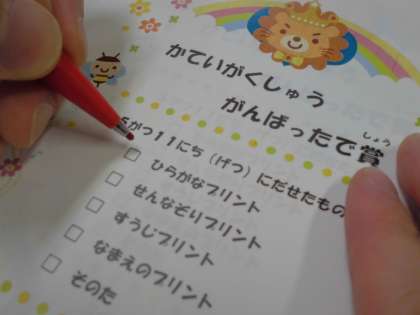 かていがくしゅう
がんばったで賞
しょう
5がつ11にち(げつ)にだせたもの
□ ひらがなプリント
□ せんなぞりプリント
□ すうじプリント
□ なまえのプリント
□ そのた